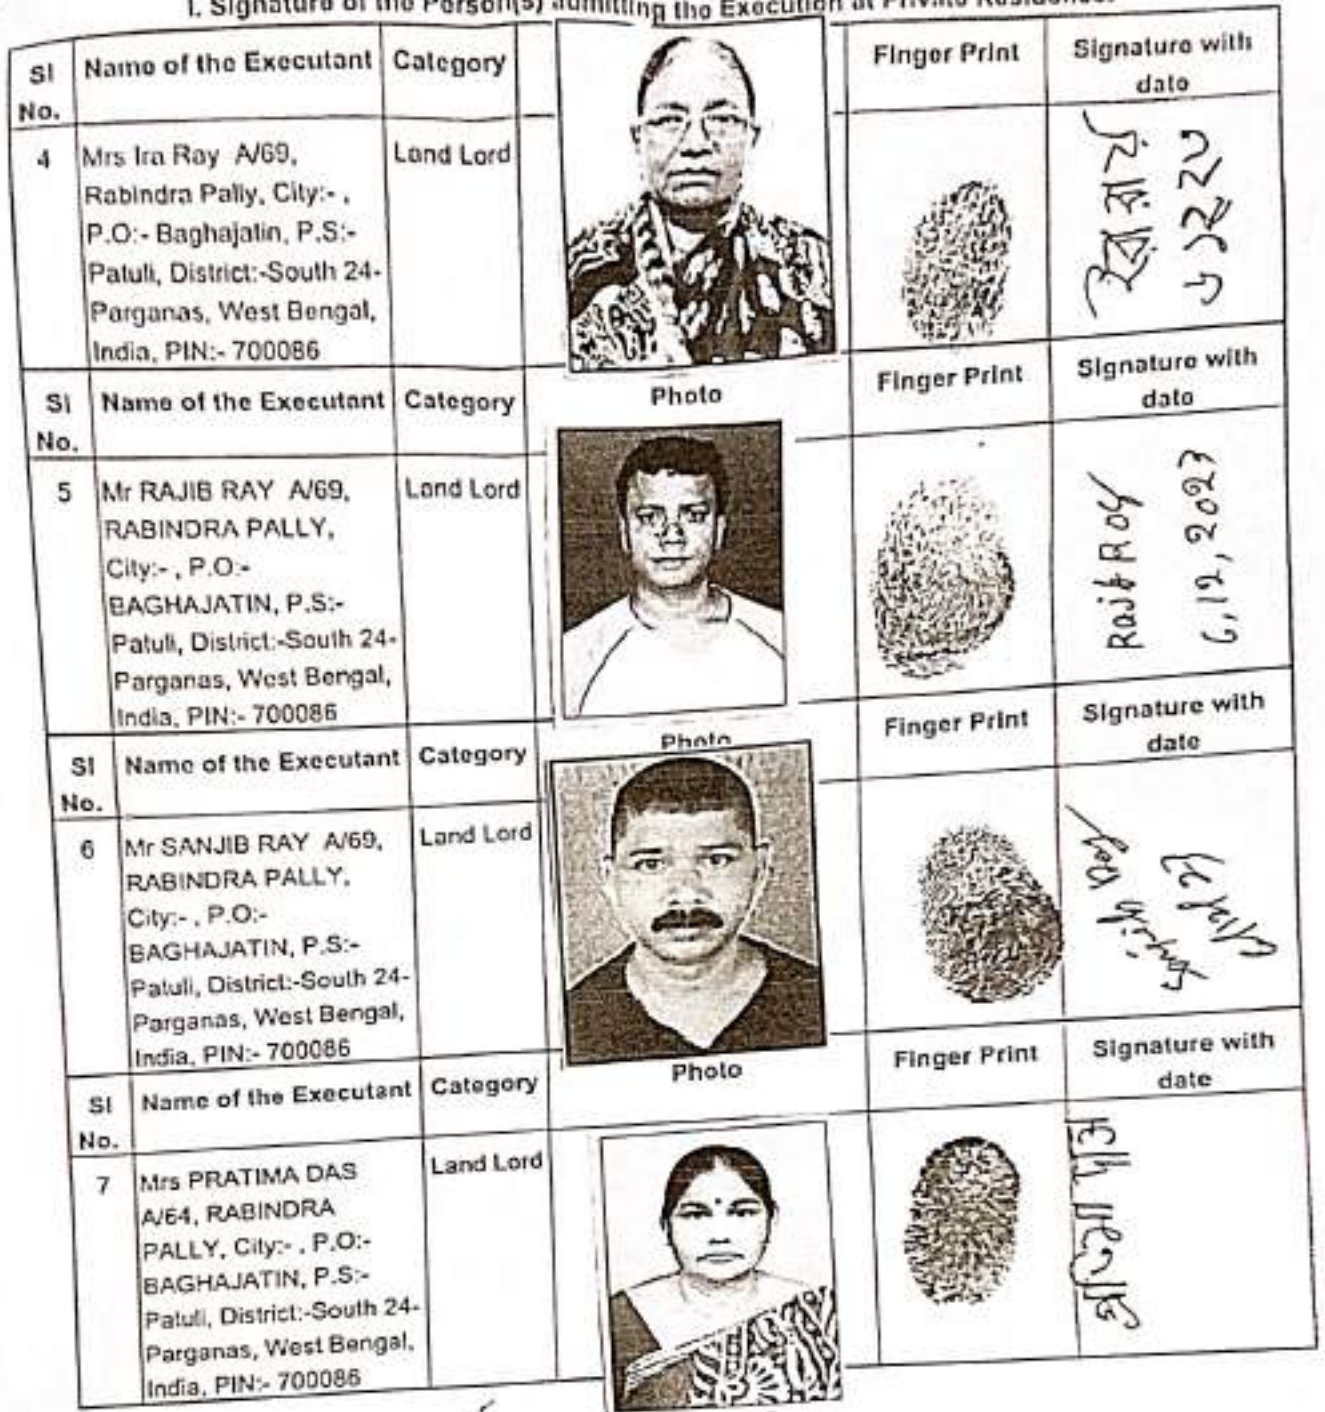 I. Signature of the Person(s) admitting the Execution at Private Residence.
Sl No. Name of the Executant Category Finger Print Signature with date
4 Mrs Ira Ray A/69, Land Lord
Rabindra Pally, City:- ,
P.O:- Baghajatin, P.S:-
Patuli, District:-South 24-
Parganas, West Bengal,
India, PIN:- 700086
ইরা রায়
Sl No. Name of the Executant Category Photo Finger Print Signature with date
5 Mr RAJIB RAY A/69, Land Lord
RABINDRA PALLY,
City:- , P.O:-
BAGHAJATIN, P.S:-
Patuli, District:-South 24-
Parganas, West Bengal,
India, PIN:- 700086
Rajib Roy
6,12,2023
Sl No. Name of the Executant Category Photo Finger Print Signature with date
6 Mr SANJIB RAY A/69, Land Lord
RABINDRA PALLY,
City:- , P.O:-
BAGHAJATIN, P.S:-
Patuli, District:-South 24-
Parganas, West Bengal,
India, PIN:- 700086
Sanjib Ray
6/12/23
Sl No. Name of the Executant Category Photo Finger Print Signature with date
7 Mrs PRATIMA DAS Land Lord
A/64, RABINDRA
PALLY, City:- , P.O:-
BAGHAJATIN, P.S:-
Patuli, District:-South 24-
Parganas, West Bengal,
India, PIN:- 700086
প্রতিমা দাস